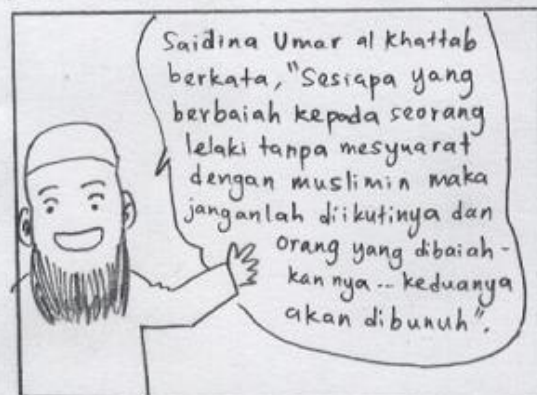 Saidina Umar al khattab
berkata, "Sesiapa yang
berbaiah kepada seorang
lelaki tanpa mesyuarat
dengan muslimin maka
janganlah diikutinya dan
orang yang dibaiah-
kan nya... keduanya
akan dibunuh".